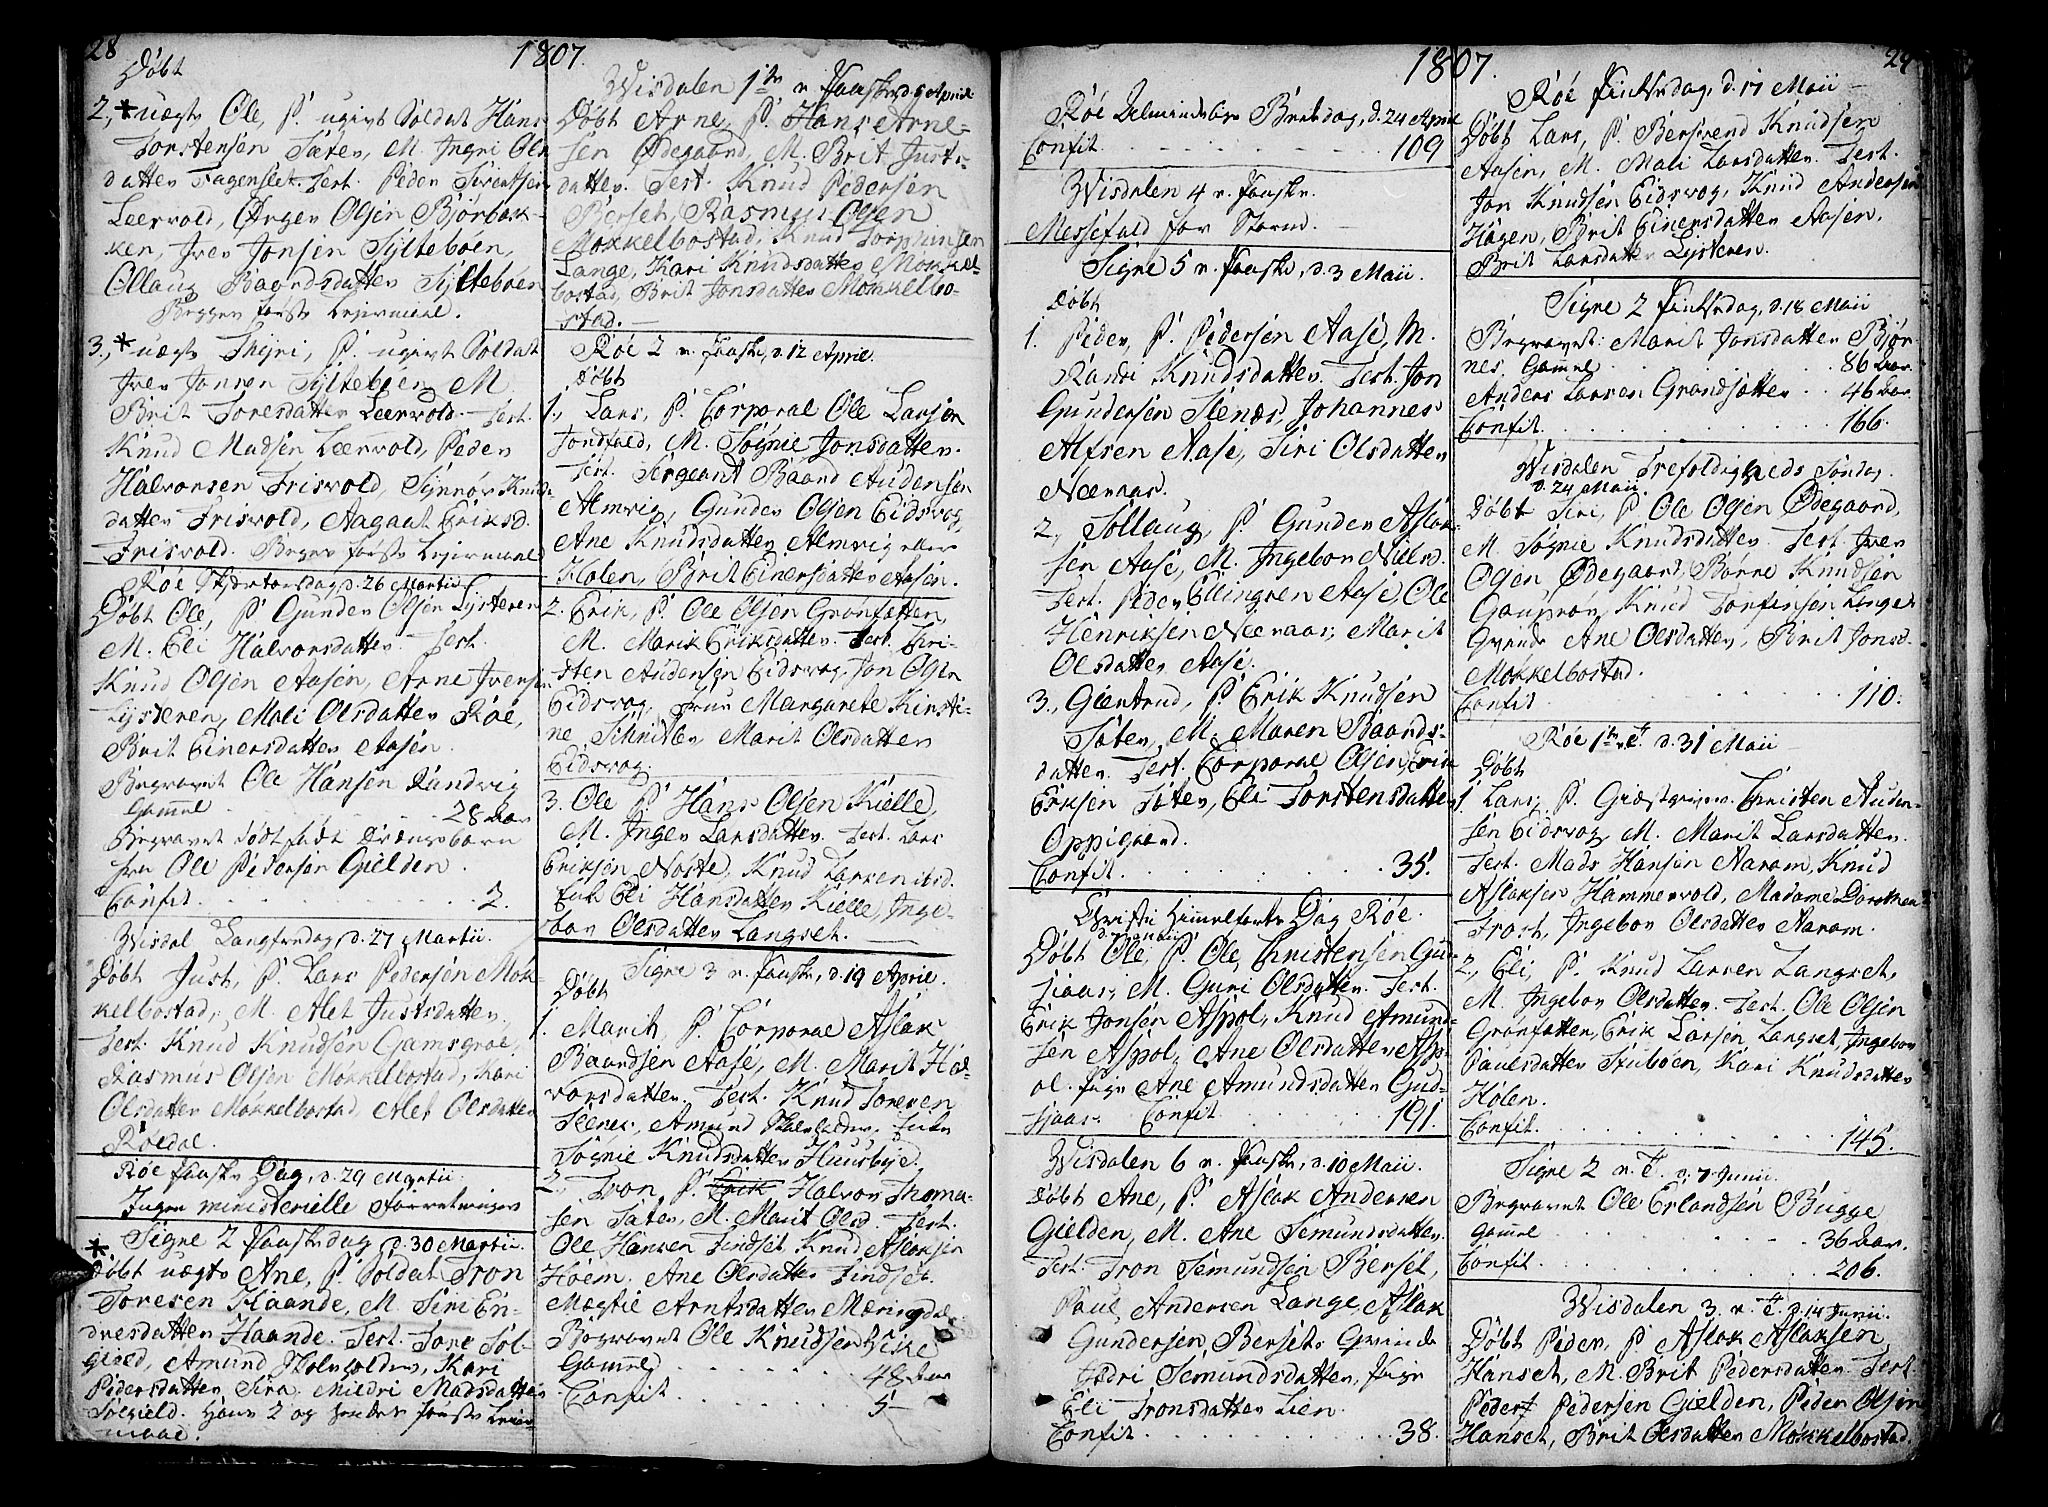 28
1807.
Døbt
2, * uægte Ole, P. ugivt Soldat Hans
Torstensen Sæter, M. Ingri Ols
datter Fagerslet. Test. Peder Sivertsen
Leervold, Ørger Olsen Bjørbæk-
ken, Iver Jonsen Sylteböen,
Ollaug Baardsdatter Sylteböen
Begges første Lejermaal.
3, * uægte Thyri, P. ugivt Soldat
Iver Jonsen Sylteböen, M
Brit Toresdatter Leervold. Test.
Knud Madsen Leervold, Peder
Halvorsen Frisvold, Synnöv Knuds
datter Frisvold, Aagaat Eriksd.
Frisvold. Begges første Lejermaal
Röe Skjertorsdag, d. 26 Martii
Döbt Ole, P. Gunder Olsen Lysteren
M. Eli Halvorsdatter. Test.
Knud Olsen Aasen, Arne Iversen
Lysteren, Mali Olsdatter Röe,
Brit Einersdatter Aasen.
Begravet Ole Hansen Randvig
Gammel . . . 28 Aar
Begravet dödfödt Drengebarn
for Ole Pedersen Gielden.
Confit. . . . 2.
Wisdal Langfredag, d. 27 Martii.
Döbt Just, P. Lars Pedersen Mök-
kelbostad, M. Alet Justsdatter.
Test. Knud Knudsen Gamsgroe,
Rasmus Olsen Mökkelbostad, Kari
Olsdatter Mökkelbostad, Alet Olsdatter
Röedal.
Röe Paaske Dag, d. 29 Martii
Ingen ministerielle Forretninger
Signe 2 Paaskedag, d. 30 Martii.
* Döbt uægte Ane, P. Soldat Tron
Toresen Haande, M. Siri En-
dresdatter Haande. Test. Tore Söl-
gield, Amund Skoleholder, Kari
Pedersdatter Sira, Mildri Madsdatter
Sölgield. Hans 2 og hendes første Leier
maal.
Wisdalen 1ste v. Paaske d. 5 April
Döbt Arne, P. Hans Arne-
sen Ödegaard, M. Brit Justs-
datter. Test. Knud Pedersen
Berset, Rasmus Olsen
Mökkelbostad, Knud Torphinsen
Lange, Kari Knudsdatter Mökkel-
bostad, Brit Jonsdatter Mökkelbo-
stad.
Röe 2 v. Paaske, d. 12 April.
Döbt
1., Lars, P. Corporal Ole Larsen
Tondfald, M. Sögnie Jonsdatter.
Test. Sergeant Baard Audensen
Almvig, Gunder Olsen Eidsvog,
Ane Knudsdatter Almvig eller
Holen, Brit Einersdatter Aasen.
2. Erik, P. Ole Olsen Granfætter,
M. Marit Eriksdatter. Test. Chri-
sten Audensen Eidsvog, Jon Olsen
Eidsvog, Frue Margarete Kirsti-
ne Schnitler Marit Olsdatter
Eidsvog.
3. Ole P. Hans Olsen Kielle,
M. Inger Larsdatter. Test. Lars
Eriksen Noste, Knud Larsen ibid.
Enke Eli Hansdatter Kielle, Inge-
bor Olsdatter Langset.
Signe 3 v. Paaske, d. 19 April.
Döbt
1. Marit, P. Corporal Aslak
Baardsen Aase, M. Marit Hal-
vorsdatter. Test. Knud Toresen
Slenes, Amund Skoleholder, Enke
Sögnie Knudsdatter Huusbye.
2, Tron, P. Erik Halvor Thoma-
sen Sæter, M. Marit Olsd. Test.
Ole Hansen Findset, Knud Aslaksen
Hoem. Ane Olsdatter Findset.
Magtie Arntsdatter Meringdal
Begravet Ole Knudsen Viske
Gammel . . . 48 Aar
Confit . . . 5
1807.
29
Röe Almindelige Bededag, d. 24 April
Confit. . . . 109
Wisdalen 4 v. Paaske.
Messefald for Storm.
Signe 5 v. Paaske, d. 3 Maii.
Döbt
1. Peder, P. Peder Aase, M.
Randi Knudsdatter. Test. Jon
Gundersen Slenes, Johannes
Alfsen Aase, Siri Olsdatter
Neeraas.
2, Sollaug, P. Gunder Aslak-
sen Aase, M. Ingebor Nielsd.
Test. Peder Ellingsen Aase, Ole
Henriksen Neeraas, Marit
Olsdatter Aase.
3., Giertrud, P. Erik Knudsen
Sæter, M. Maren Baards-
datter. Test. Corporal Olsen, Erik
Eriksen Sæter, Eli Torstensdatter
Oppigaard.
Confit. . . . 35.
Christi Himmelfarts Dag Röe.
d. 7 Maii
Döbt Ole, P. Ole Christensen Gud-
siaas, M. Guri Olsdatter. Test.
Erik Jonsen Aspol, Knud Amund-
sen Aspol, Ane Olsdatter Asp-
ol. Pige Ane Amundsdatter Gud-
siaas. Confit . . . 191.
Wisdalen 6 v. Paaske, d. 10 Maii.
Döbt Ane, P. Aslak Andersen
Gielden, M. Ane Semundsdatter.
Test. Tron Semundsen Berset,
Paul Andersen Lange, Aslak
Gundersen Berset, Qvinde
Jødri Semundsdatter, Pige
Eli Tronsdatter Lien.
Confit . . . 38.
Röe Pintsedag, d. 17 Maii
Döbt Lars, P. Bersvend Knudsen
Aasen, M. Mali Larsdatter. Test.
Jon Knudsen Eidsvog, Knud Andersen
Hagen, Brit Einersdatter Aasen.
Brit Larsdatter Lysteren.
Signe 2 Pintsedag, d. 18 Maii
Begravet: Marit Jonsdatter Bjør-
nes, Gamel . . . 86 Aar.
Anders Larsen Grandsæter . . 46 Aar
Confit. . . . 166.
Wisdalen Trefoldigheds Söndag
d. 24 Maii.
Döbt Siri, P. Ole Olsen Ödegaard,
M. Sögnie Knudsdatter. Test. Iver
Olsen Ödegaard, Borre Knudsen
Gauprör, Knud Torfinsen Lange
Qvinde Ane Olsdatter, Brit Jonsd.
Mökkelbostad.
Confit . . . 110.
Röe 1ste e. T. d. 31 Maii
Döbt
1. Lars, P. Giæstgiver Christen Auden-
sen Eidsvog, M. Marit Larsdatter.
Test. Mads Hansen Aaram, Knud
Aslaksen Hammervold, Madame Dorothea
Frost, Ingebor Olsdatter Aaram.
2, Eli, P. Knud Larsen Langset,
M. Ingebor Olsdatter. Test. Ole Olsen
Granfætter, Erik Larsen Langset, Ingebor
Paulsdatter Stuböen, Kari Knudsdatter
Holen.
Confit. . . . 145.
Signe 2 e. T. d. 7 Junii.
Begravet Ole Erlandsen Bugge
Gammel . . . 36 Aar.
Confit . . . 206.
Wisdalen 3. e. T. d. 14 Junii.
Döbt Peder, P. Aslak Aslaksen
Hanset, M. Brit Pedersdatter. Test.
Peder Pedersen Gielden, Peder Olsen
Hanset, Brit Olsdatter Mökkelbostad.